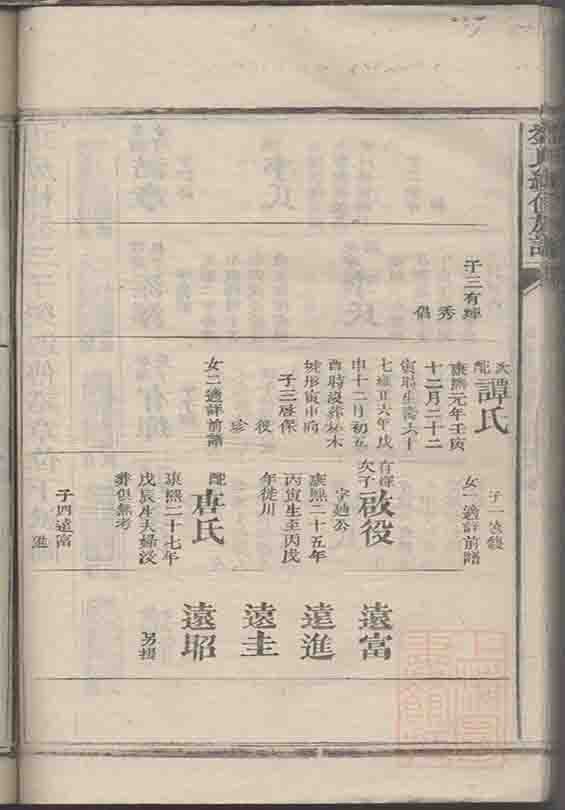 子三有輝
秀
倡
次
配
譚氏
康熙元年壬寅
十二月二十二
寅時生壽六十
七雍正六年戊
申十二月初五
酉時歿葬
形寅申向
子三啟保
役
珍
女二適詳前譜
子一遠
女一適詳前譜
有輝
次子
啟役
字
康熙二十五年
丙寅生至丙戌
年徙川
配
唐氏
康熙二十七年
戊辰生夫婦歿
葬俱無考
子四遠富
進
遠富
遠進
遠圭
遠昭
另提